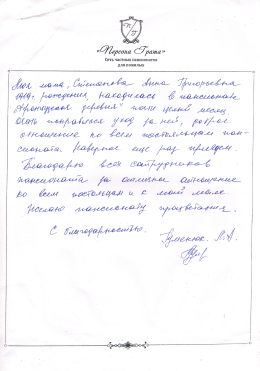 «Персона Грата»
Сеть частных пансионатов
для пожилых
Моя мама, Степанова Анна Григорьевна
рождения, находилась в пансионате
"Французская деревня" почти целый месяц.
Очень понравился уход за ней, доброе
отношение ко всем постояльцам пан-
сионата. Наверное еще раз приедем.
Благодарю всех сотрудников
пансионата за отличное отношение
ко всем постояльцам и к моей маме.
Желаю пансионату процветания.
С благодарностью.